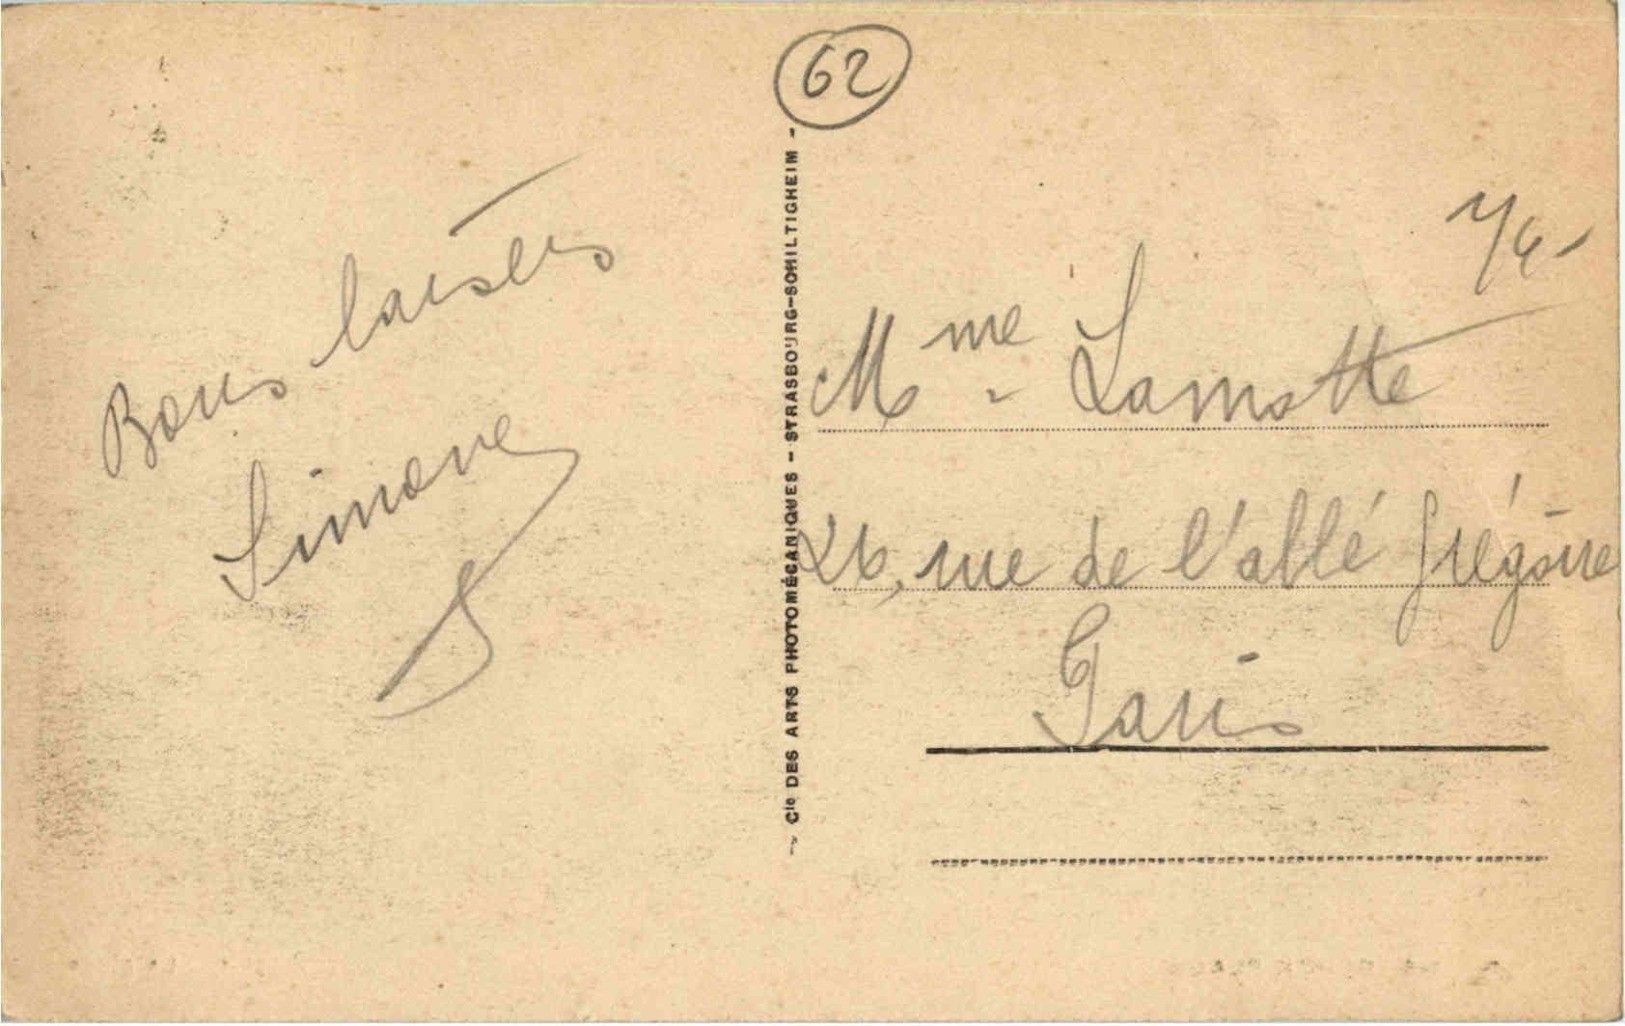 62
Bons baisers
Simone
- Cie DES ARTS PHOTOMÉCANIQUES - STRASBOURG-SCHILTIGHEIM -
Mme Lamotte
26, rue de l'abbé Grégoire
Paris